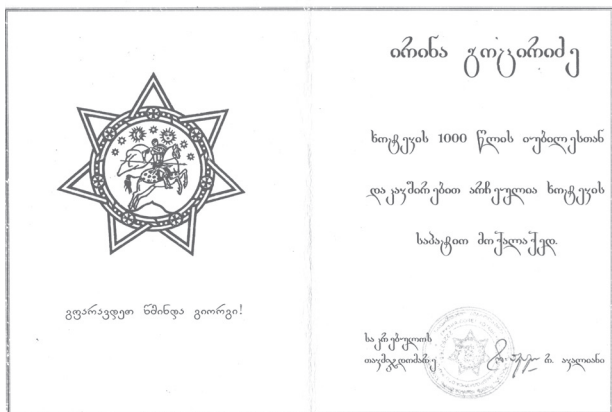 გფარავდეთ წმინდა გიორგი!
ირინა გოცირიძე
ხოტევის 1000 წლის იუბილესთან
დაკავშირებით არჩეულია ხოტევის
საპატიო მოქალაქედ.
საკრებულოს
თავმჯდომარე რ. ავალიანი